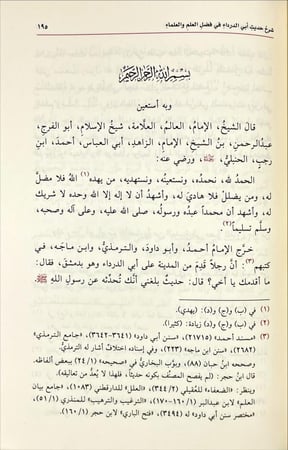 شرح حديث أبي الدرداء في فضل العلم والعلماء
١٩٥
بسم الله الرحمن الرحيم
وبه أستعين
قال الشيخ، الإمامُ، العالمُ، العلَّامة، شيخُ الإسلام، أبو الفرج،
عبدُالرحمن، بنُ الشيخِ، الإمامِ، الزاهدِ، أبي العباس، أحمدَ، ابنِ
رجبٍ، الحنبليُّ، ورضي عنه:
الحمدُ لله، نحمدُه، ونستعينُه، ونستهديه، من يهده(١) اللهُ فلا مضلَّ
له، ومن يضلل فلا هاديَ له، وأشهدُ أن لا إله إلا الله وحده لا شريك
له، وأشهد أن محمداً عبدُه ورسولُه، صلى الله عليه، وعلى آله وصحبه،
وسلَّم تسليماً(٢).
خرَّج الإمامُ أحمدُ، وأبو داودَ، والترمذيُّ، وابن ماجَه، في
كتبهم(٣): أنَّ رجلاً قَدِمَ من المدينة على أبي الدرداءِ وهو بدمشقَ، فقال:
ما أقدمك يا أخي؟ قال: حديثٌ بلغني أنَّك تُحدِّثه عن رسولِ اللهِ ﷺ
(١) في (ب) و(ج) و(د): (يهدي).
(٢) في (ب) و(ج) و(د) زيادة: (كثيرا).
(٣) «مسند أحمد» (٢١٧١٥)، «سنن أبي داود» (٣٦٤١-٣٦٤٢)، «جامع الترمذي»
(٢٦٨٢)، «سنن ابن ماجه» (٢٢٣)، وفي إسناده اختلافٌ أشار له الترمذيُّ.
وصححه ابنُ حبان (٨٨)، وبوَّب البخاريُّ في «صحيحه» (٢٤/١) ببعض ألفاظه.
قال ابنُ حجر: (لم يفصح المصنِّف بكونه حديثاً، فلهذا لا يُعدُّ من تعاليقه).
وينظر: «الضعفاء» للعقيلي (٣٤٤/٢)، «العلل» للدارقطني (١٠٨٣)، «جامع بيان
العلم» لابن عبدالبر (١٦٠/١-١٧٠)، «الترغيب والترهيب» للمنذري (٥١/١)،
«مختصر سنن أبي داود» له (٣٤٩٤)، «فتح الباري» لابن حجر (١٦٠/١).